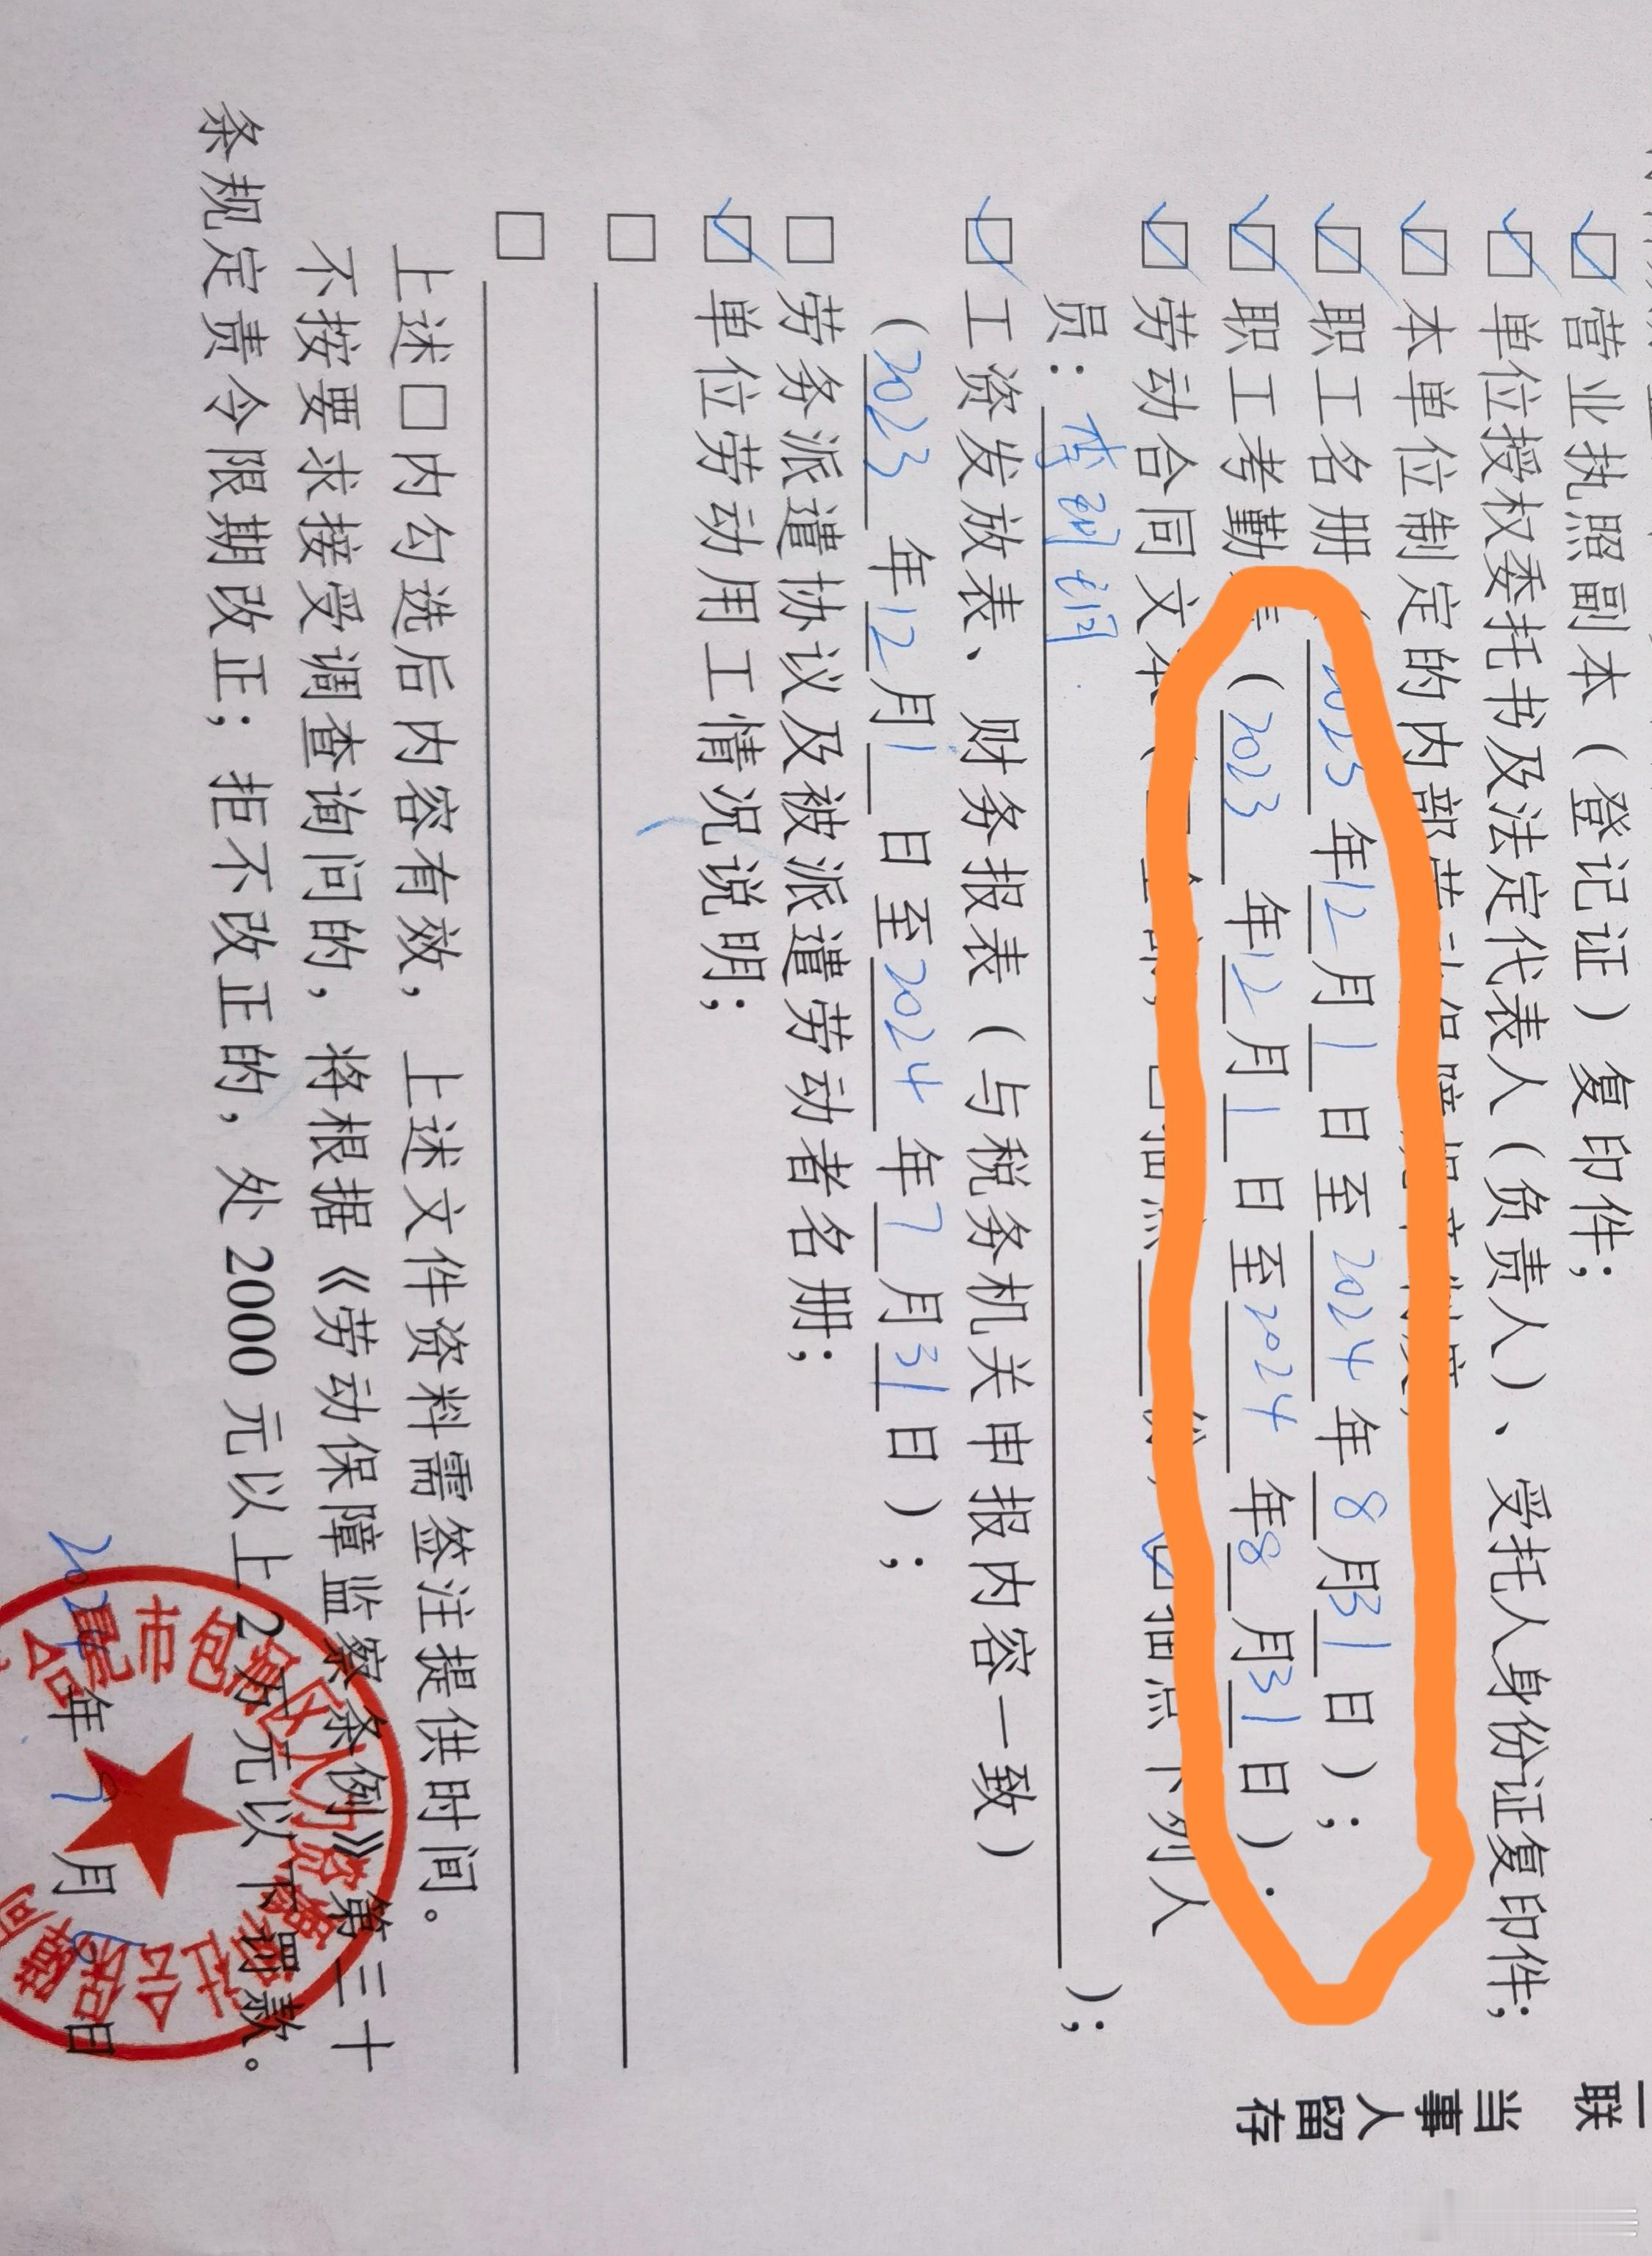 营业执照副本（登记证）复印件；
单位授权委托书及法定代表人（负责人）、受托人身份证复印件；
本单位制定的内部劳动保障规章制度；
职工名册（2023年12月1日至2024年8月31日）；
职工考勤表（2023年12月1日至2024年8月31日）；
劳动合同文本（ 份， 下列人
员： ）；
工资发放表、财务报表（与税务机关申报内容一致）
（2023年12月1日至2024年7月31日）；
劳务派遣协议及被派遣劳动者名册；
单位劳动用工情况说明；
上述□内勾选后内容有效，上述文件资料需签注提供时间。
不按要求接受调查询问的，将根据《劳动保障监察条例》第三十
条规定责令限期改正；拒不改正的，处2000元以上2万元以下罚款。
2024年9月 日
一联
当事人留存